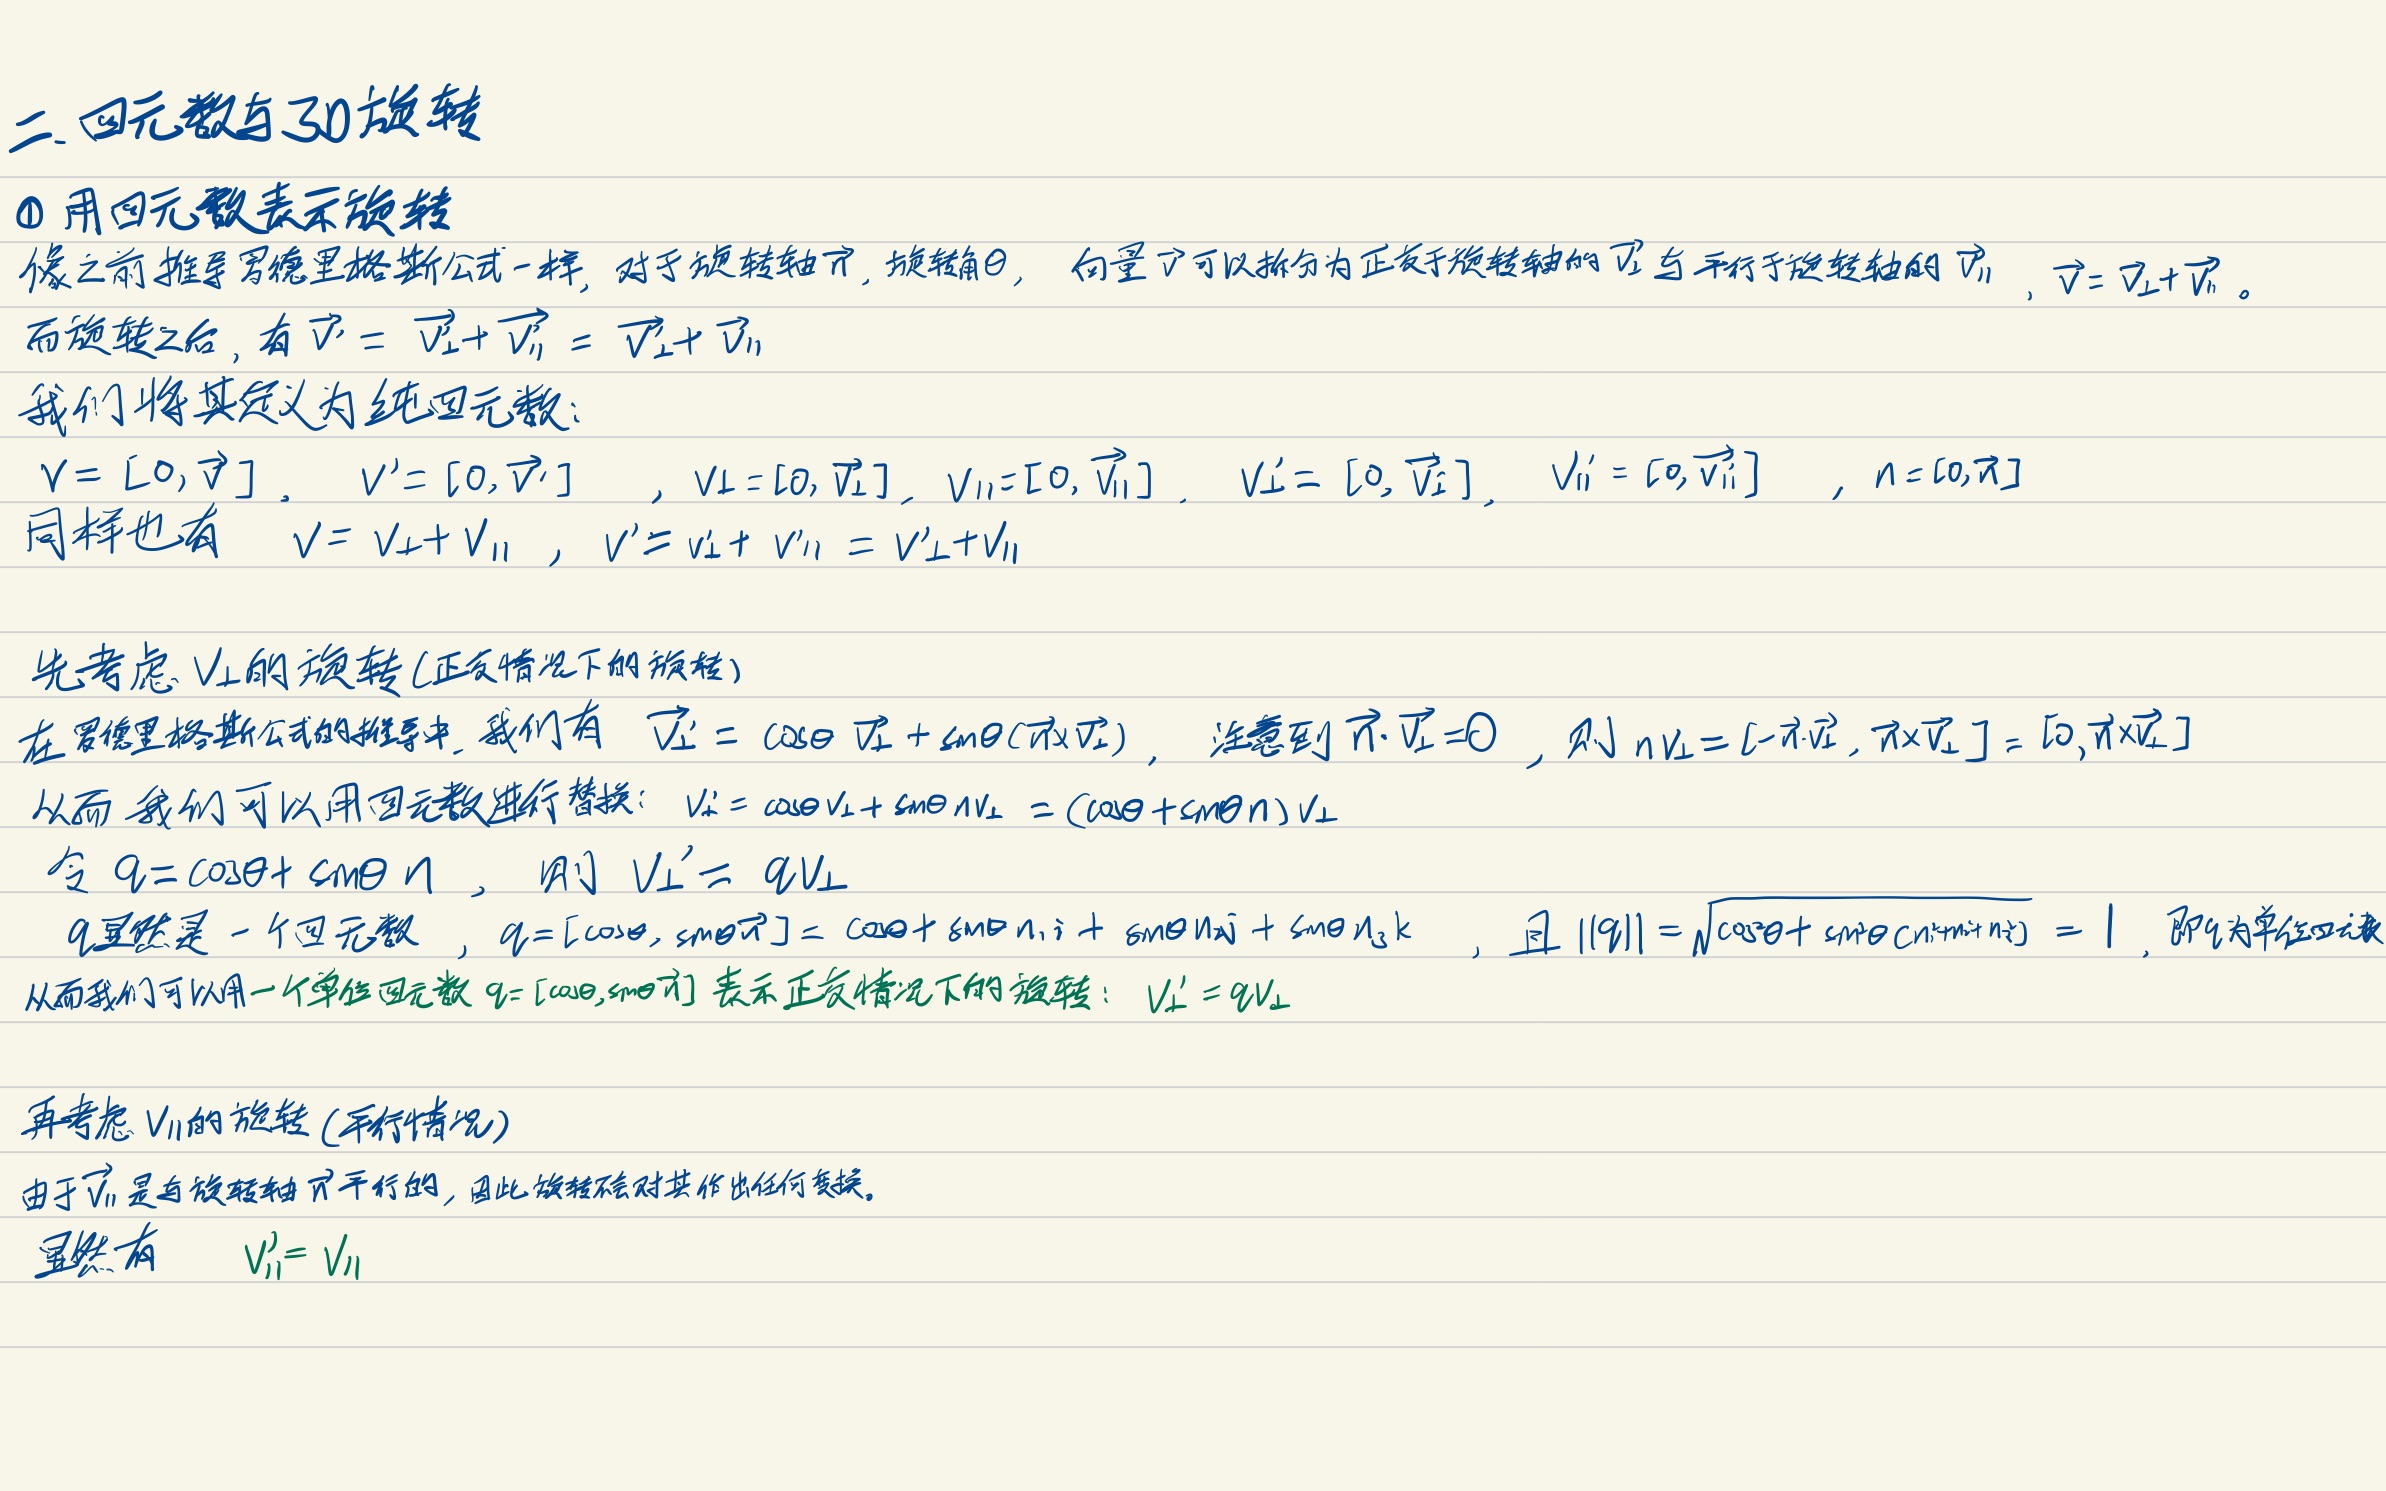 二、四元数与3D旋转
① 用四元数表示旋转
像之前推导罗德里格斯公式一样, 对于旋转轴n⃗, 旋转角θ, 向量v⃗可以拆分为正交于旋转轴的v⃗⊥与平行于旋转轴的v⃗∥, v⃗ = v⃗⊥ + v⃗∥。
而旋转之后, 有 v⃗' = v⃗⊥' + v⃗∥' = v⃗⊥' + v⃗∥
我们将其定义为纯四元数:
v = [0, v⃗], v' = [0, v⃗'], v⊥ = [0, v⃗⊥], v∥ = [0, v⃗∥], v⊥' = [0, v⃗⊥'], v∥' = [0, v⃗∥'], n = [0, n⃗]
同样也有 v = v⊥ + v∥, v' = v⊥' + v∥' = v⊥' + v∥
先考虑 v⊥的旋转(正交情况下的旋转)
在罗德里格斯公式的推导中, 我们有 v⃗⊥' = cosθ v⃗⊥ + sinθ(n⃗×v⃗⊥), 注意到 n⃗·v⃗⊥ = 0, 则 nv⊥ = [-n⃗·v⃗⊥, n⃗×v⃗⊥] = [0, n⃗×v⃗⊥]
从而我们可以用四元数进行替换: v⊥' = cosθv⊥ + sinθnv⊥ = (cosθ+sinθn)v⊥
令 q = cosθ + sinθ n, 则 v⊥' = qv⊥
q显然是一个四元数, q = [cosθ, sinθn⃗] = cosθ + sinθn₁i + sinθn₂j + sinθn₃k, 且 ||q|| = √(cos²θ + sin²θ(n₁²+n₂²+n₃²)) = 1, 即q为单位四元数
从而我们可以用一个单位四元数 q = [cosθ, sinθn⃗] 表示正交情况下的旋转: v⊥' = qv⊥
再考虑 v∥的旋转(平行情况)
由于v⃗∥是与旋转轴n⃗平行的, 因此旋转不会对其作出任何变换。
显然有 v∥' = v∥